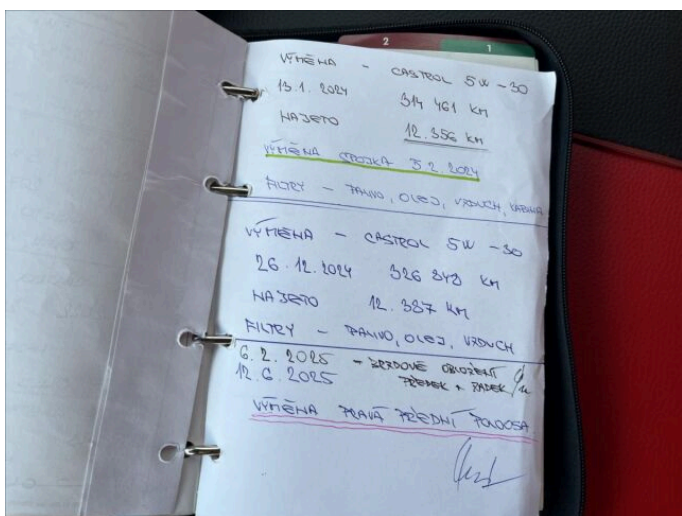 2
1
VÝMĚNA - CASTROL 5W-30
13.1. 2024 314 461 KM
NAJETO 12.356 KM
VÝMĚNA SPOJKA 3.2.2024
FILTRY - PALIVO, OLEJ, VZDUCH, KABINA
VÝMĚNA - CASTROL 5W-30
26.12.2024 326 848 KM
NAJETO 12.387 KM
FILTRY - PALIVO, OLEJ, VZDUCH
6.2.2025 - BRZDOVÉ OBLOŽENÍ
12.6.2025 PŘEDEK +
VÝMĚNA PRAVÁ PŘEDNÍ POLOOSA